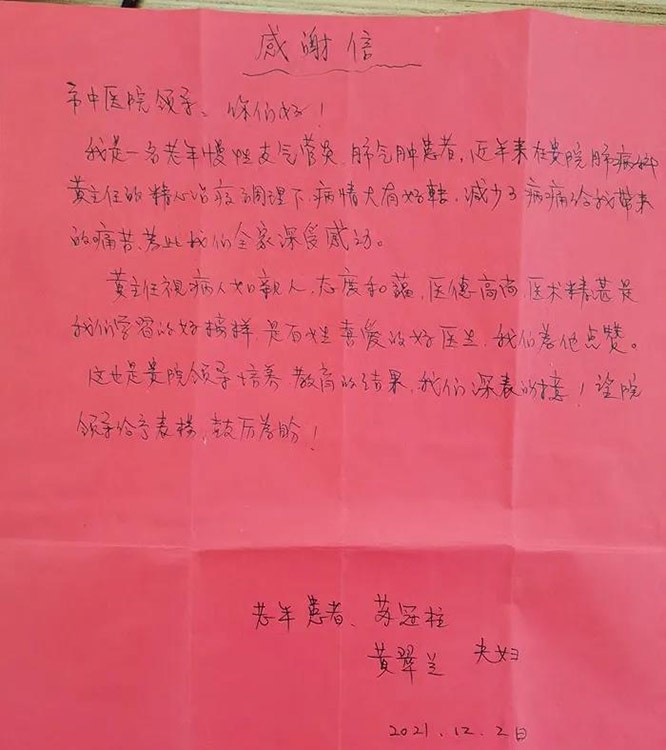 感谢信
市中医院领导、你们好！
我是一名老年慢性支气管炎、肺气肿患者，近年来在贵院肺病科
黄主任的精心治疗调理下，病情大有好转，减少了病痛给我带来
的痛苦，为此我们全家深受感动。
黄主任视病人如亲人，态度和蔼，医德高尚，医术精甚是
我们学习的好榜样，是百姓喜爱的好医生，我们为他点赞。
这也是贵院领导培养、教育的结果，我们深表的意！望院
领导给予表扬，鼓厉为盼！
老年患者、苏冠柱
黄翠兰 夫妇
2021.12.2日